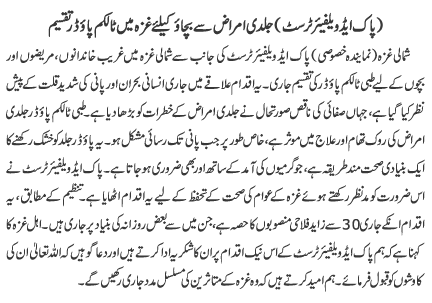 (پاک ایڈ ویلفیئر ٹرسٹ) جلدی امراض سے بچاؤ کیلئے غزہ میں ٹالکم پاؤڈر تقسیم
شمالی غزہ (نمایندہ خصوصی) پاک ایڈ ویلفیئر ٹرسٹ کی جانب سے شمالی غزہ میں غریب خاندانوں، مریضوں اور
بچوں کے لیے طبی ٹالکم پاؤڈر کی تقسیم جاری۔ یہ اقدام علاقے میں جاری انسانی بحران اور پانی کی شدید قلت کے پیش
نظر کیا گیا ہے، جہاں صفائی کی ناقص صورتحال نے جلدی امراض کے خطرات کو بڑھا دیا ہے۔ طبی ٹالکم پاؤڈر جلدی
امراض کی روک تھام اور علاج میں موثر ہے، خاص طور پر جب پانی تک رسائی مشکل ہو۔ یہ پاؤڈر جلد کو خشک رکھنے کا
ایک بنیادی صحت مند طریقہ ہے، جو گرمیوں کی آمد کے ساتھ اور بھی ضروری ہو جاتا ہے۔ پاک ایڈ ویلفیئر ٹرسٹ نے
اس ضرورت کو مدنظر رکھتے ہوئے غزہ کے عوام کی صحت کے تحفظ کے لیے یہ اقدام اٹھایا ہے۔ تنظیم کے مطابق، یہ
اقدام انکے جاری 30 سے زاید فلاحی منصوبوں کا حصہ ہے، جن میں سے بعض روزانہ کی بنیاد پر جاری ہیں۔ اہل غزہ کا
کہنا ہے کہ ہم پاک ایڈ ویلفیئر ٹرسٹ کے اس نیک اقدام پر ان کا شکریہ ادا کرتے ہیں اور دعا گو ہیں کہ اللہ تعالیٰ ان کی
کاوشوں کو قبول فرمائے۔ ہم امید کرتے ہیں کہ وہ غزہ کے متاثرین کی مسلسل مدد جاری رکھیں گے۔